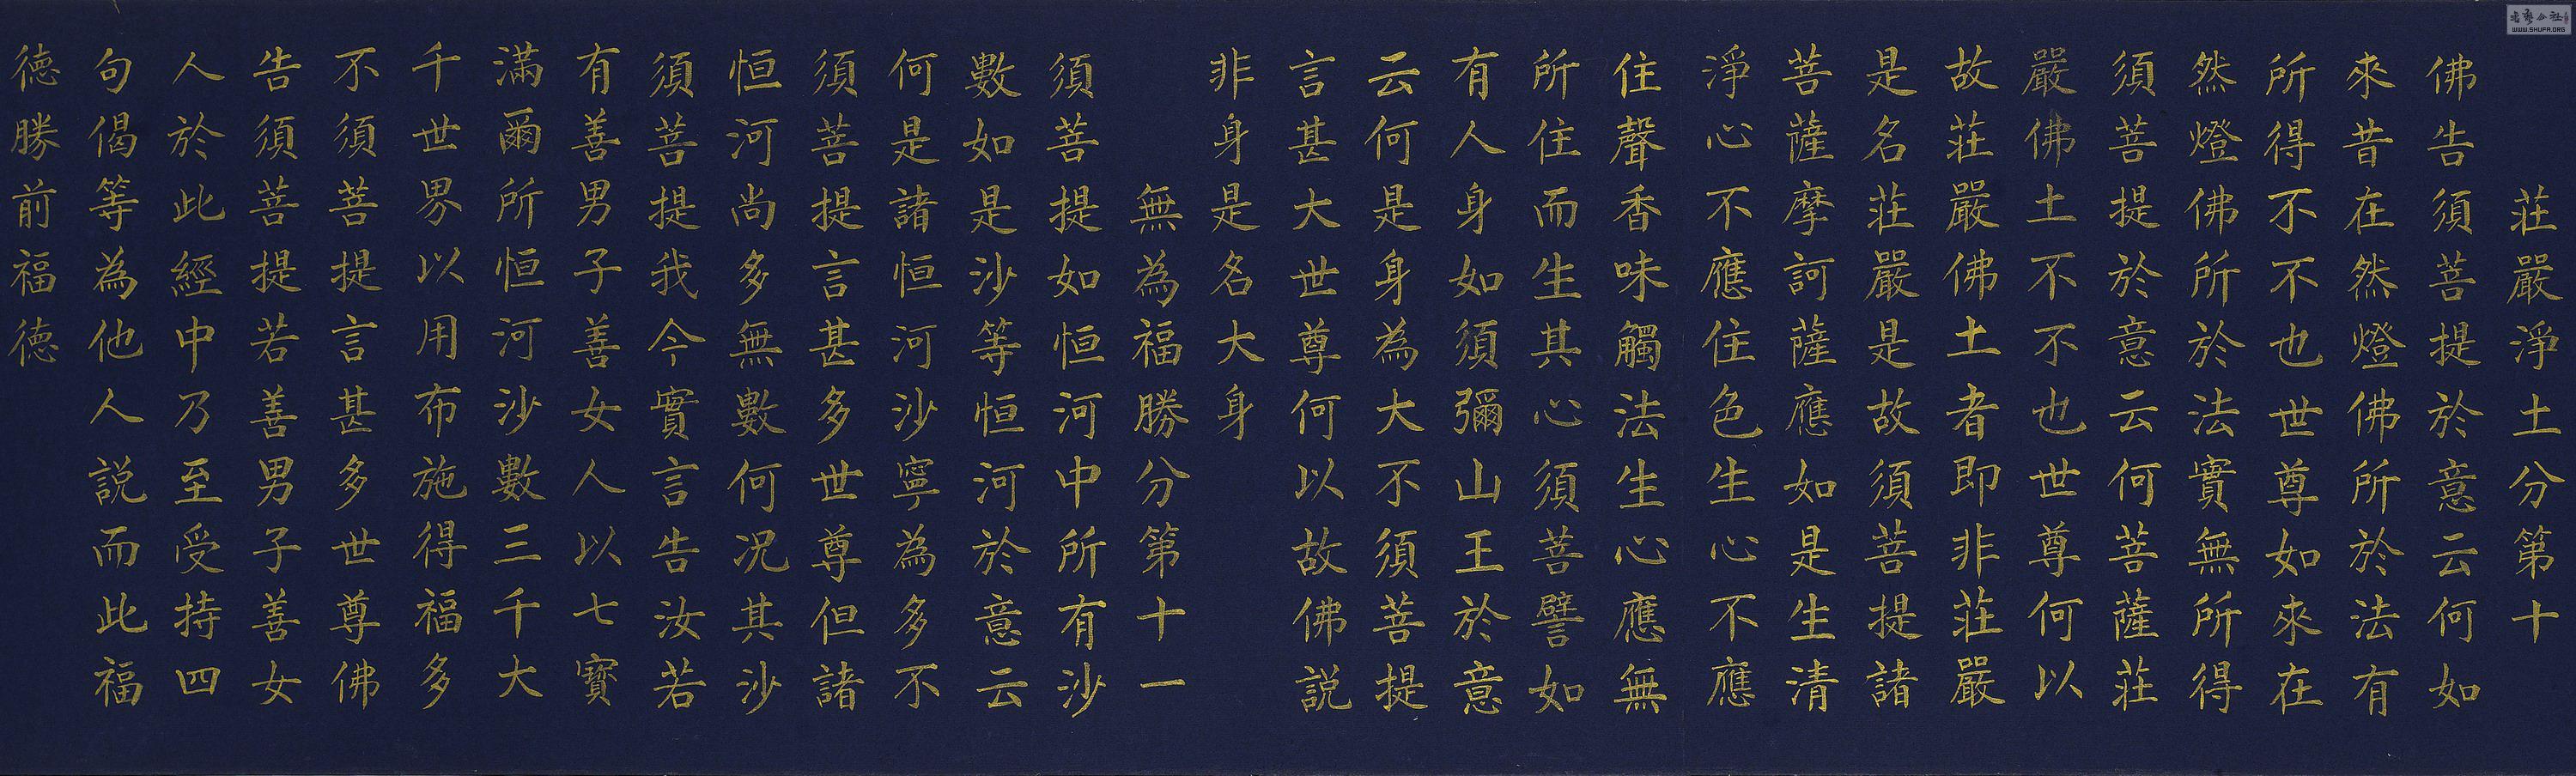 莊嚴淨土分第十
佛告須菩提於意云何如
來昔在然燈佛所於法有
所得不不也世尊如來在
然燈佛所於法實無所得
須菩提於意云何菩薩莊
嚴佛土不不也世尊何以
故莊嚴佛土者即非莊嚴
是名莊嚴是故須菩提諸
菩薩摩訶薩應如是生清
淨心不應住色生心不應
住聲香味觸法生心應無
所住而生其心須菩譬如
有人身如須彌山王於意
云何是身為大不須菩提
言甚大世尊何以故佛説
非身是名大身
無為福勝分第十一
須菩提如恒河中所有沙
數如是沙等恒河於意云
何是諸恒河沙寧為多不
須菩提言甚多世尊但諸
恒河尚多無數何況其沙
須菩提我今實言告汝若
有善男子善女人以七寶
滿爾所恒河沙數三千大
千世界以用布施得福多
不須菩提言甚多世尊佛
告須菩提若善男子善女
人於此經中乃至受持四
句偈等為他人説而此福
德勝前福德
WWW.SHUFA.ORG